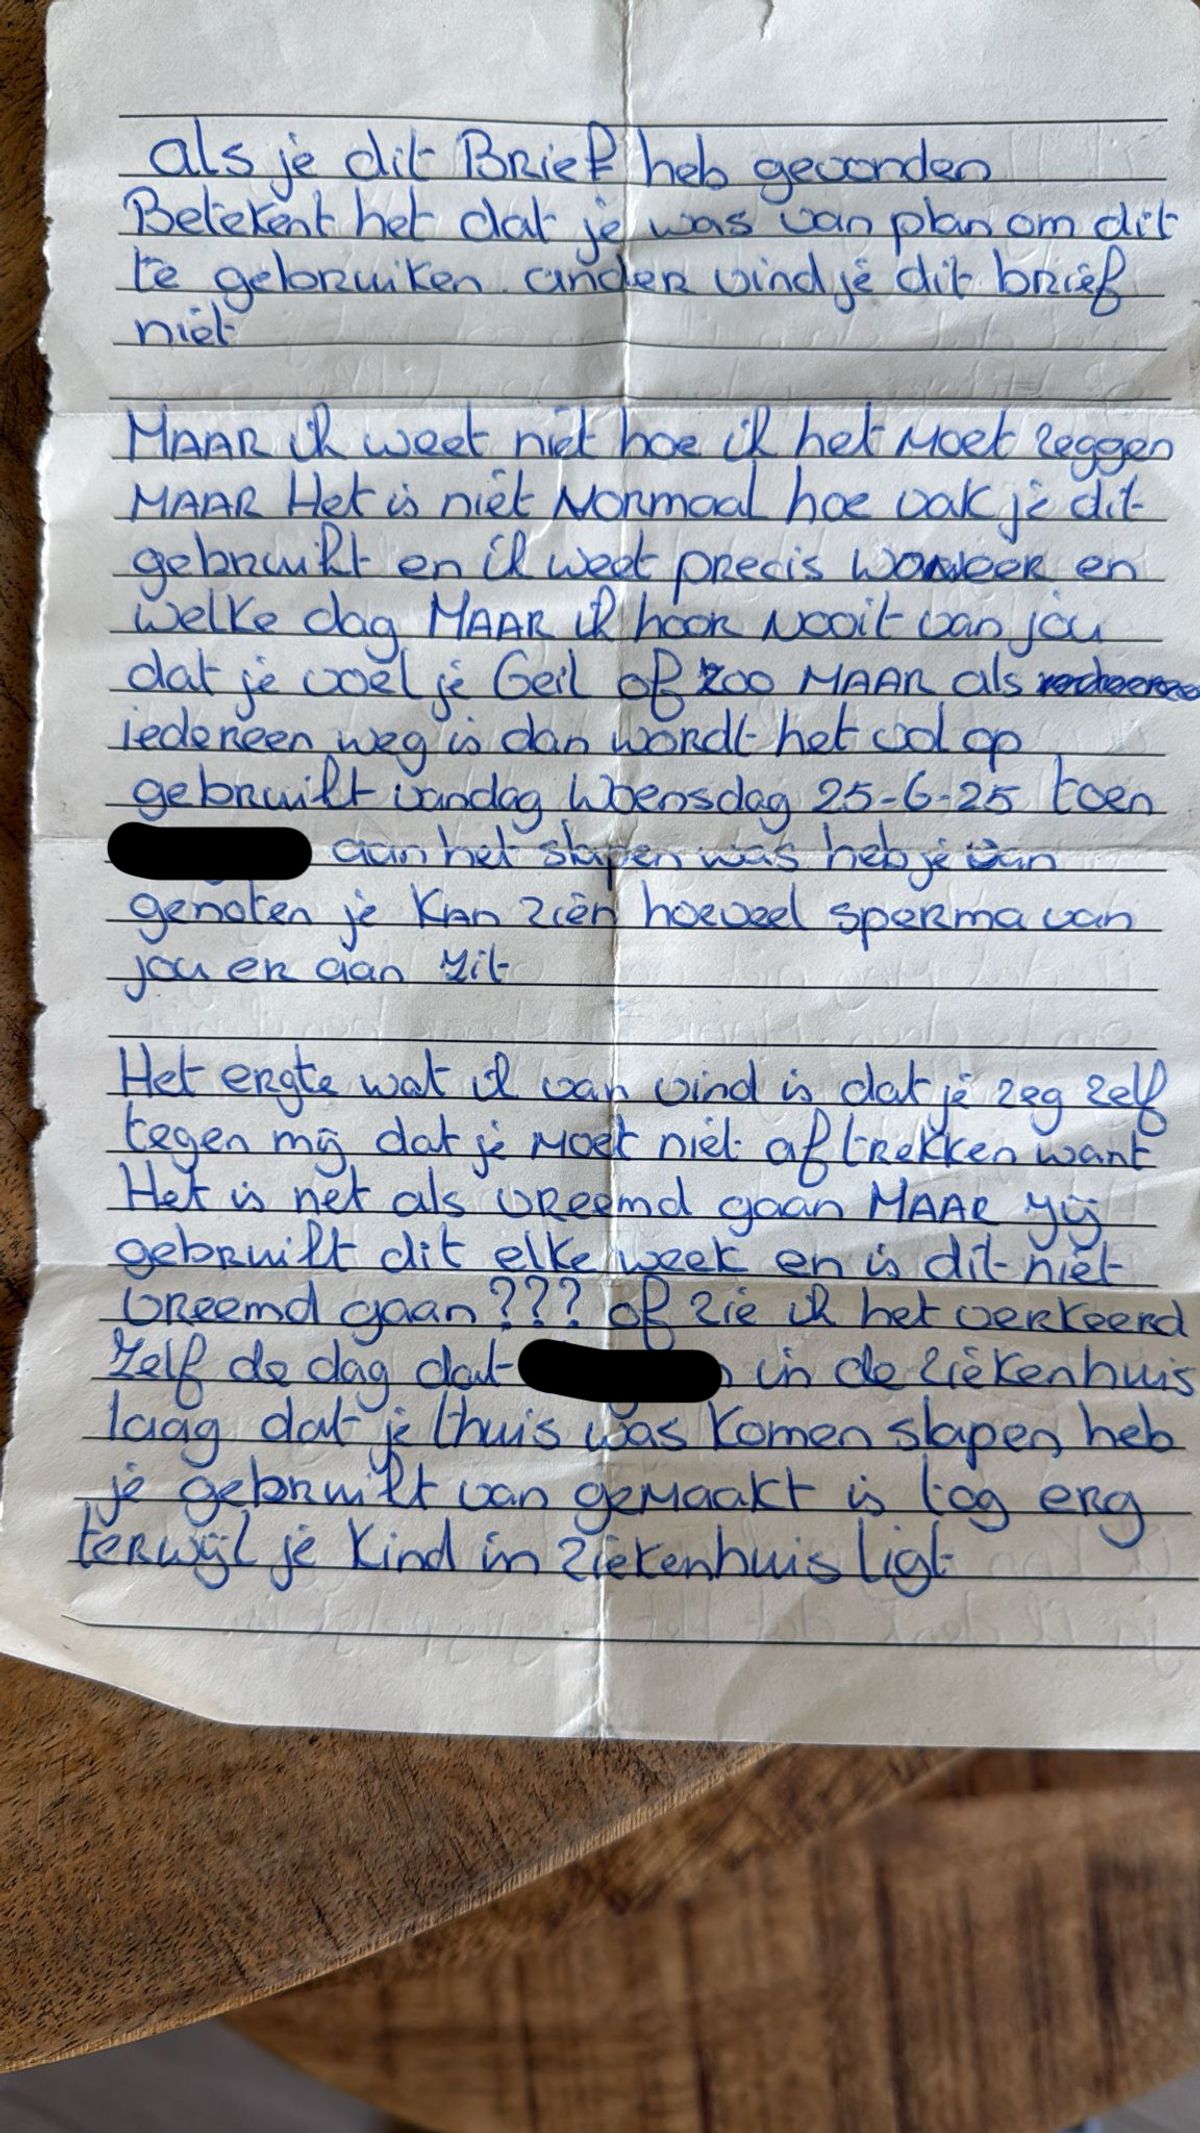 als je dit Brief heb gevonden
Betekent het dat je was van plan om dit
te gebruiken. ander vind je dit brief
niet
MAAR ik weet niet hoe ik het Moet zeggen
MAAR Het is niet Normaal hoe vak je dit
gebruikt en ik weet precis waneer en
welke dag MAAR ik hoor Nooit van jou
dat je voel je Geil of zoo MAAR als
iedereen weg is dan wordt het vol op
gebruikt vandag Woensdag 25-6-25 toen
aan het slapen was heb je van
genoten je kan zien hoeveel sperma van
jou er aan zit
Het ergte wat ik van vind is dat je zeg zelf
tegen mij dat je Moet niet af trekken want
Het is net als vreemd gaan MAAR jij
gebruikt dit elke week en is dit niet
vreemd gaan??? of zie ik het verkeerd
zelf de dag dat in de ziekenhuis
laag dat je thuis was komen slapen heb
je gebruikt van gemaakt is tog erg
terwijl je kind in ziekenhuis ligt